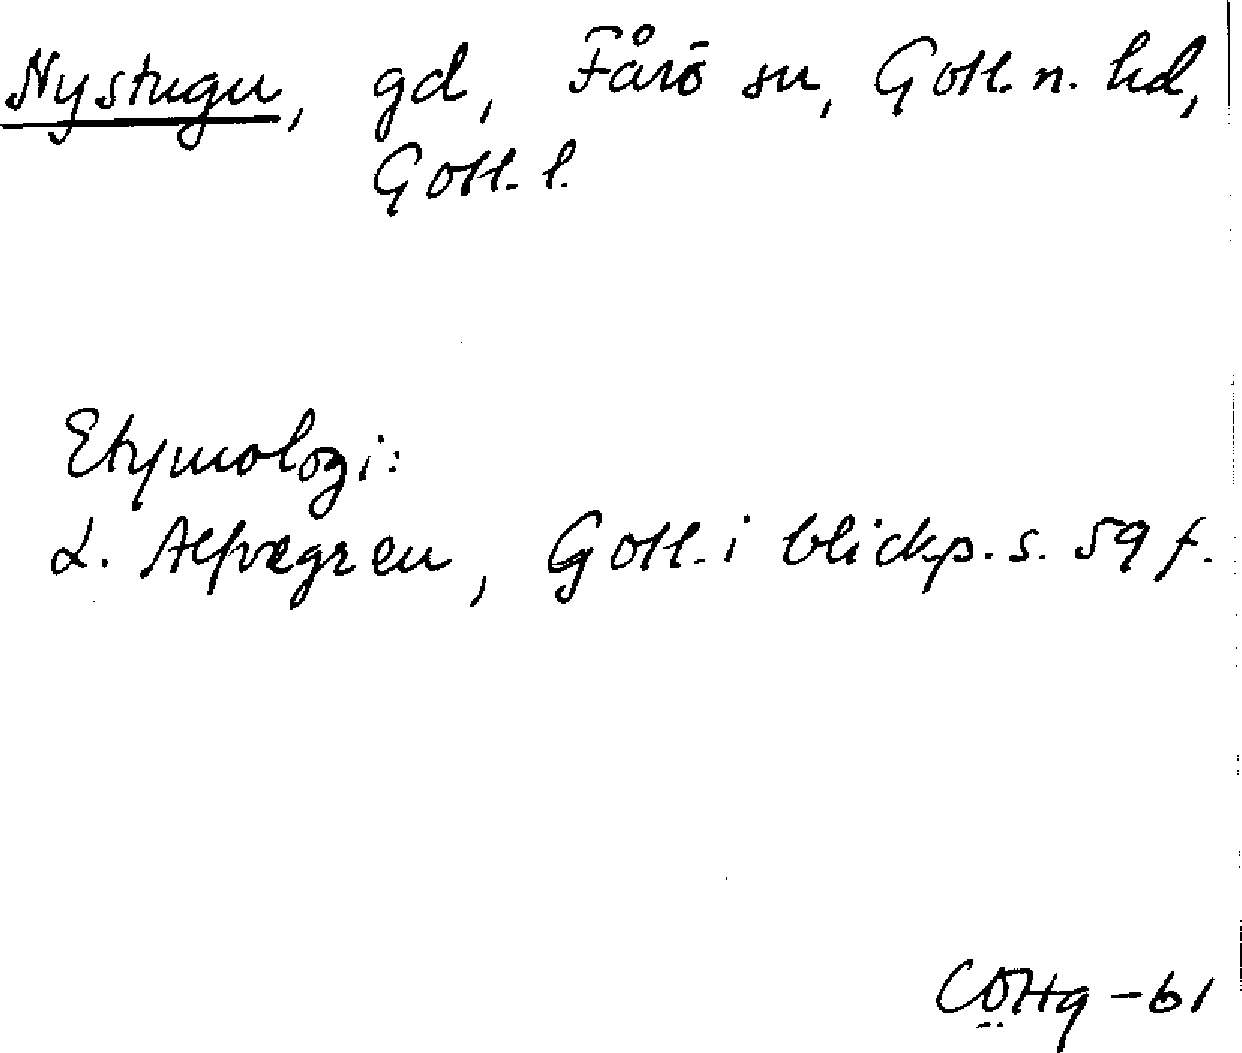 Nystugu, gd, Fårö sn, Gotl. n. hd,
Gotl. l.
Etymologi:
L. Alfvegren, Gotl. i blickp. s. 59 f.
CÖHg -61